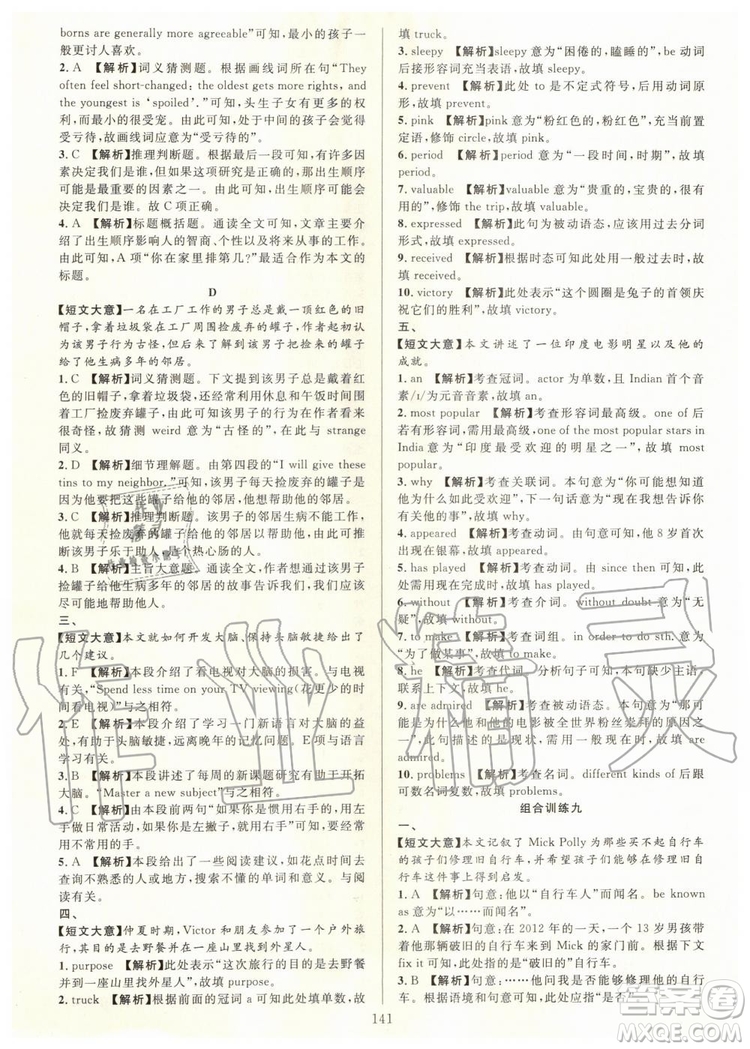 borns are generally more agreeable”可知，最小的孩子一
般更讨人喜欢。
2. A 【解析】词义猜测题。根据画线词所在句“They
often feel short-changed: the oldest gets more rights, and
the youngest is ‘spoiled’.”可知，头生子女有更多的权
利，而最小的很受宠爱。处于中间的孩子会觉得
受亏待，故画线词应意为“受亏待的”。
3. C 【解析】推理判断题。根据最后一段可知，有许多因
素决定我们是谁，但因为这项研究是正确的，出生顺序
可能是最重要的因素之一。出生顺序可能会大大
决定我们是谁。故 C 项正确。
4. A 【解析】标题概括题。通读全文可知，文章主要介
绍了出生顺序影响人的智商、个性以及将从事的工作。
由此可知，A项“你在家里排第几？”最适合作为本文的
标题。
D
【短文大意】一名在工厂工作的男子总戴一顶红色的旧
帽子，拿着垃圾袋在工厂周围捡废弃的罐子，因此被人
们认为该男子行为古怪。而实际上，该男子捡来的罐子
给了他的生病多年的邻居。
1. C 【解析】词义猜测题。下文提到该男子总戴着红
色的旧帽子，拿着垃圾袋，利用休息和午饭时间围
着工厂捡废弃罐子，故该男子的行为在作者看来
很奇怪，故猜测 weird 意为“古怪的”，与 strange
同义。
2. D 【解析】细节理解题。由第四段的“I will give these
tins to my neighbor.”可知，该男子每天捡废弃的罐子是
因为他要把这些罐子给他的邻居。
3. B 【解析】推理判断题。该男子的邻居生病不能工作，
他每天捡废弃的罐子给他的邻居，帮助他的邻居，由此
推知该男子乐于助人，是一个善良的人。
4. B 【解析】主旨大意题。通读全文可知，本文通过男子
捡罐子给他生病多年的邻居的故事告诉我们，我们应该
尽可能多地帮助别人。
三、
【短文大意】本文就如何开发大脑、保持头脑敏捷给出了
几个建议。
1. F 【解析】本段介绍了看电视对大脑的损害。与电视
有关，“Spend less time on your TV viewing(花更少的时
间看电视)”与之相符。
2. E 【解析】本段介绍了学习一门新语言对大脑的益
处，有助于头脑敏捷，远离晚年的记忆问题。E项与语言
学习有关。
3. B 【解析】本段讲述了每周的新课题研究有助于开拓
大脑。“Master a new subject”与之相符。
4. C 【解析】由本段前两句“如果你是惯用右手的，
试着用左手。如果你是左撇子，就用你的右手”可知，本
段与惯用手有关。
5. A 【解析】本段介绍了一些阅读建议，如花点时间去
查询不熟悉的人或地方，去查阅不懂的单词可知，与阅
读有关。
四、
【短文大意】仲夏时期，Victor 和朋友们参加了一个户外旅
行，其目的是去野餐并在一座山里找到外星人。
1. purpose 【解析】此处表示“这次旅行的目的是去野餐
并在一座山里找到外星人”，故填 purpose。
2. truck 【解析】根据前面的冠词 a 可知此处填单数，故
填 truck。
3. sleepy 【解析】sleepy 意为“困倦的，瞌睡的”，be 动词
后接形容词充当表语，故填 sleepy。
4. prevent 【解析】此处 to 是不定式符号，后加动词原
形，故填 prevent。
5. pink 【解析】pink 意为“粉红色的，粉色的”，充当前置
定语，修饰 circle，故填 pink。
6. period 【解析】period 意为“一段时间，时期”，此处充
当宾语，故填 period。
7. valuable 【解析】valuable 意为“贵重的，宝贵的，很有
价值的”，修饰 the trip，故填 valuable。
8. expressed 【解析】此句为被动语态，应该用过去分词
形式，故填 expressed。
9. received 【解析】根据时态可知此处用一般过去时，故
填 received。
10. victory 【解析】此处表示“这个圆圈是兔子的首领庆
祝它们的胜利”，故填 victory。
五、
【短文大意】本文讲述了一位印度电影明星以及他的
成就。
1. an 【解析】考查冠词。actor 为单数，且 Indian 首个音
素/ɪ/为元音，故填 an。
2. most popular 【解析】考查形容词最高级。one of 后
若有形容词则用最高级。one of the most popular stars in
India 意为“印度最受欢迎的明星之一”，故填 most
popular。
3. why 【解析】考查关联词。他的意思是“如果你想知道
他为什么如此受欢迎，我可以给你下面我想告诉你
们的原因”，故填 why。
4. appeared 【解析】考查动词。由句意可知，他 8 岁首
次出现在银幕，故填 appeared。
5. has played 【解析】考查动词。由 since then 可知，此
处需用现在完成时，故填 has played。
6. without 【解析】考查介词。without doubt 意为“无
疑”，故填 without。
7. to make 【解析】考查词组。in order to do sth. 意为
“为了做某事”，故填 to make。
8. he 【解析】考查代词。分析句子可知，本句缺少主语，
联系上下文可知，故填 he。
9. are admired 【解析】考查动词语态。句意为“这些是
他本人和他的电影被全世界粉丝崇拜的原因之
一”，此句描述的是现状，需用被动语态，故填 are
admired。
10. problems 【解析】考查名词。different kinds of 后跟可
数名词复数，故填 problems。
组合训练九
一、
【短文大意】本文记叙了 Mick Polly 为那些买不起自行车
的孩子们修理旧自行车，我们应该从中得到启发。
1. A 【解析】句意：他以“自行车人”而闻名。be known
as 意为“以……而闻名”。
2. C 【解析】句意：在 2012 年的一天，一个 13 岁男孩带
着他那辆破旧的自行车来到 Mick 的家门前。根据下文
fix it 可知，此处指的是“破旧的”自行车。
3. B 【解析】句意：他问 Mick 是否能够给他修理自行
车。根据语境和句意可知，此处应指“是否”。
141
作业精灵
答案圈
MXQE.COM